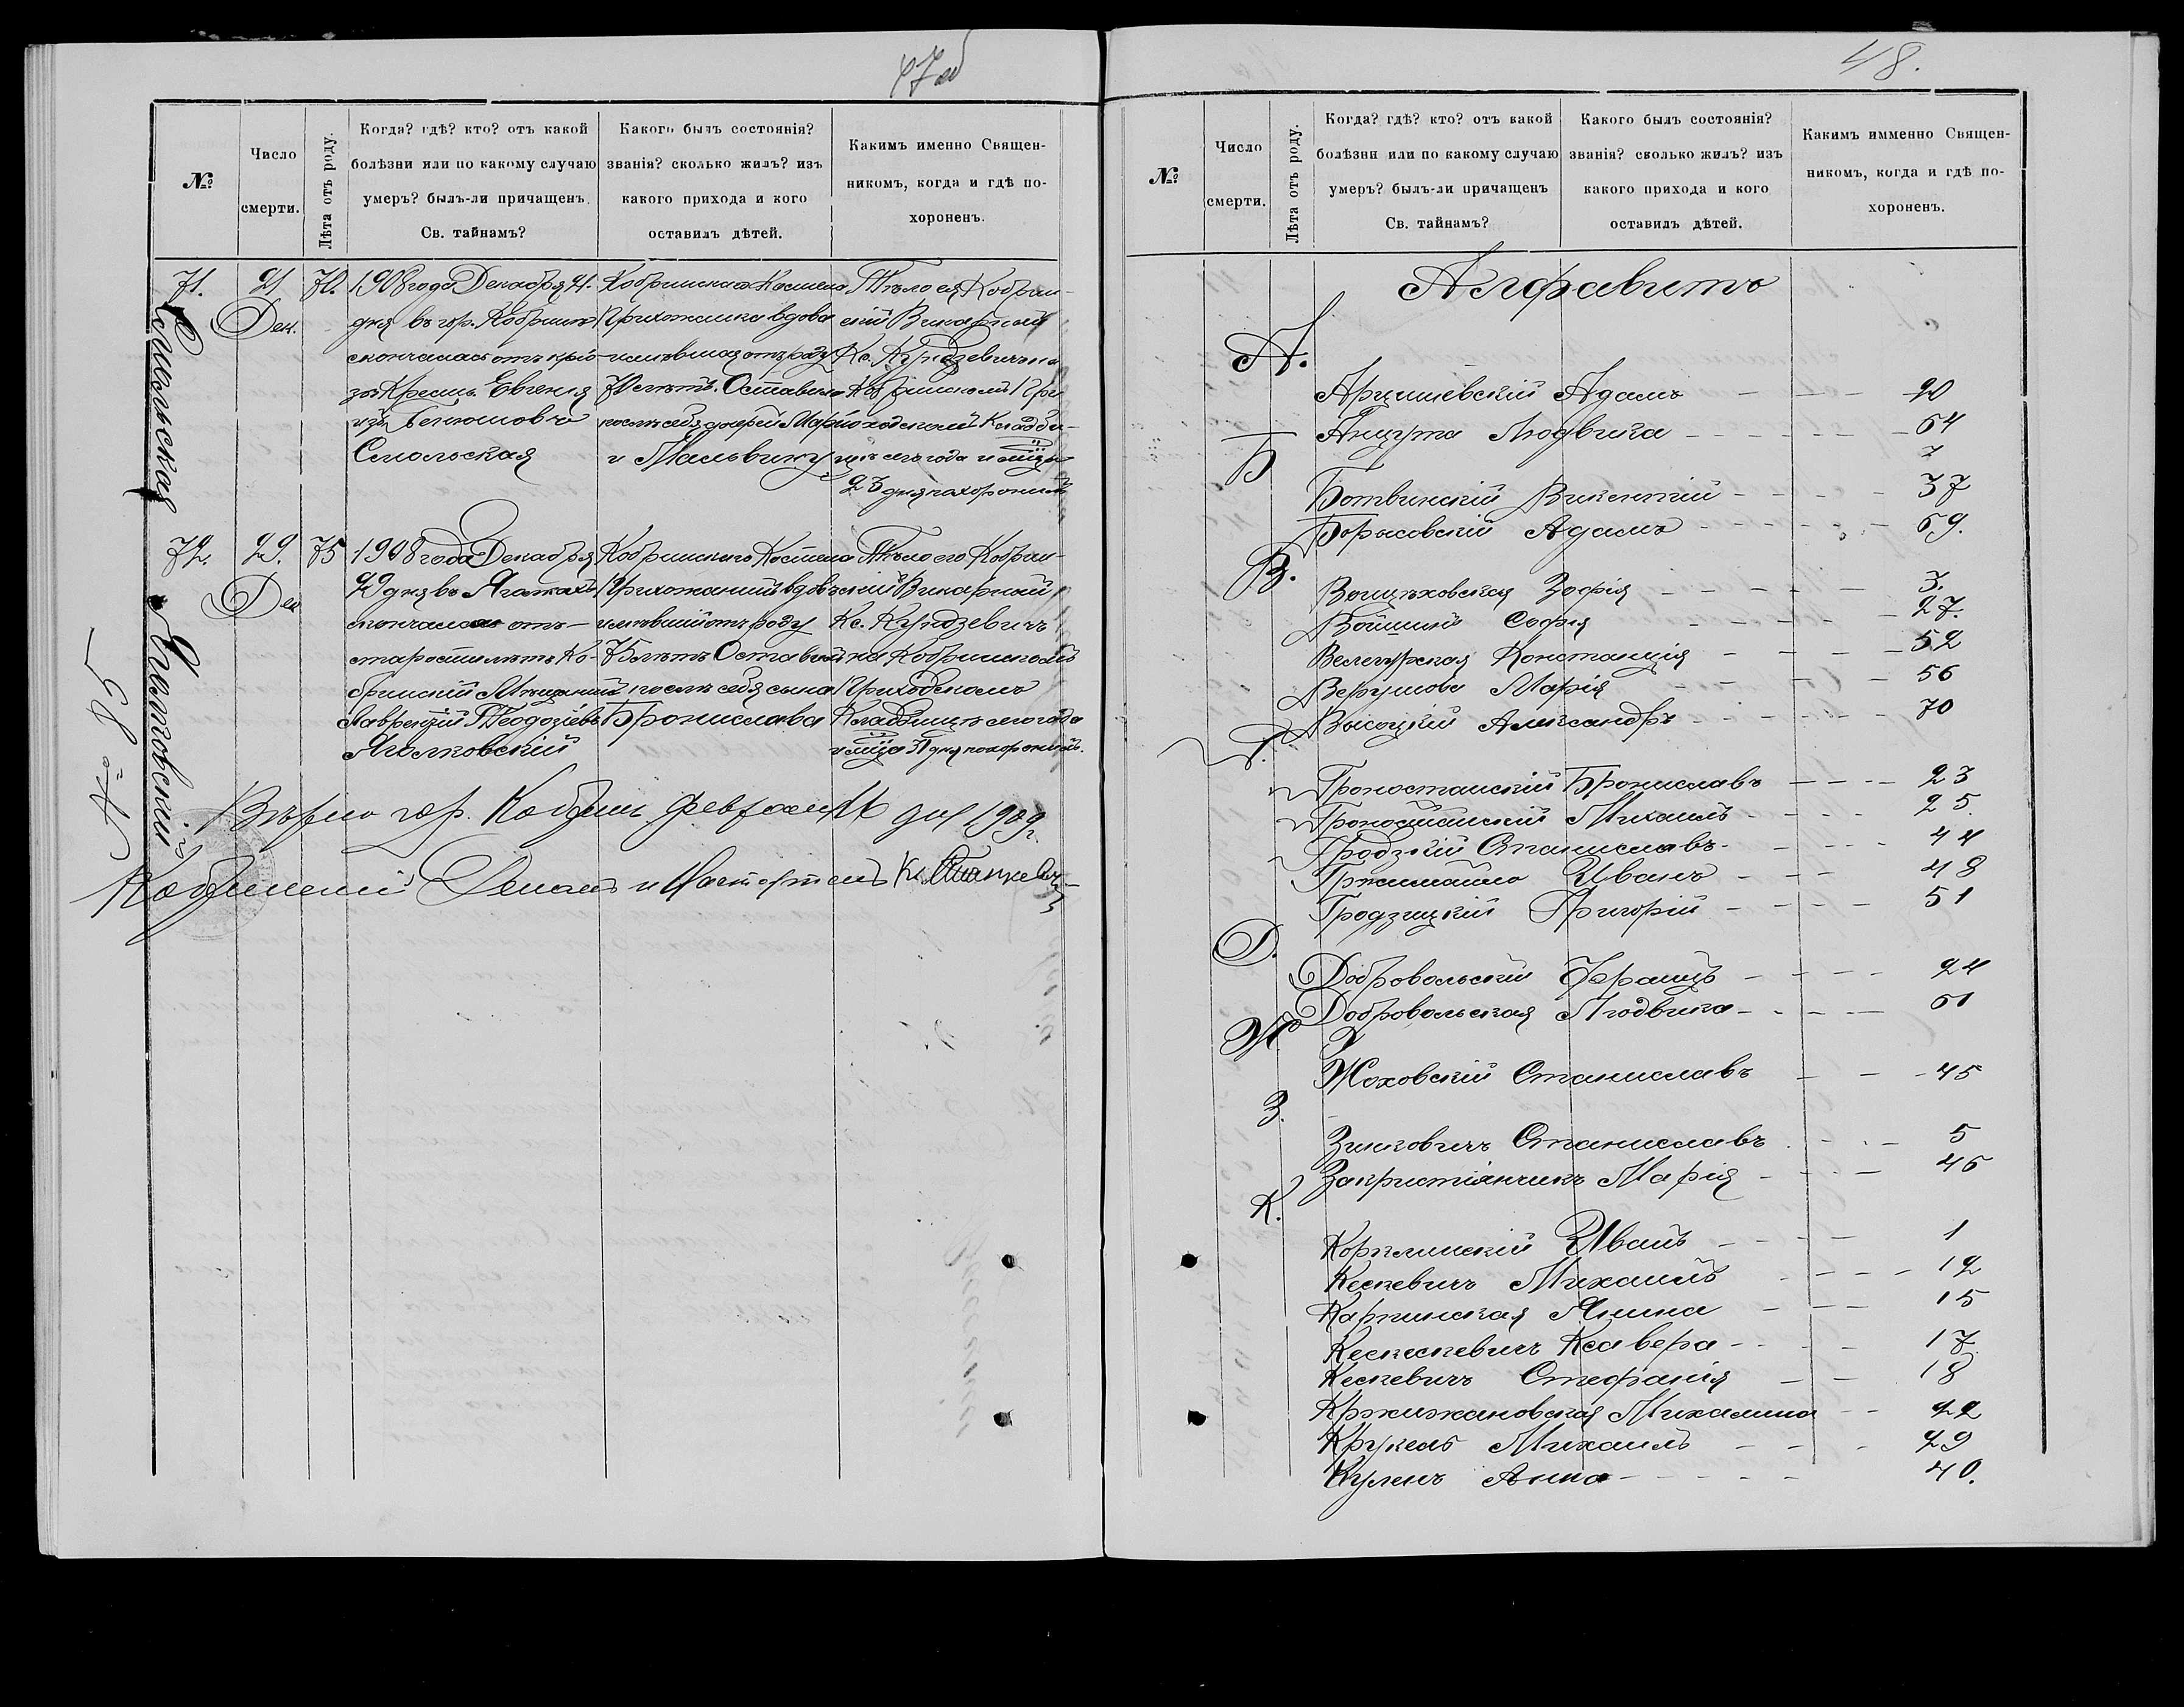 47об
№
Число
смерти.
Лѣта отъ роду.
Когда? гдѣ? кто? отъ какой
болѣзни или по какому случаю
умеръ? былъ-ли причащенъ
Св. тайнамъ?
Какого былъ состоянія?
званія? сколько жилъ? изъ
какого прихода и кого
оставилъ дѣтей.
Какимъ именно Священ-
никомъ, когда и гдѣ по-
хороненъ.
71.
21
Дек.
70.
1908 года Декабря 21.
дня въ гор. Кобринѣ
скончалась отъ
Евгенія
изъ
Смольская
Кобринскаго Костела
Прихожанка вдова
имѣвшая отъ роду
70 лѣтъ. Оставила
послѣ себя дочерей
и Мальвину
Тѣло ея Кобрин-
скій Викарный
Кс.
Кобринскомъ При-
ходскомъ Кладби-
щѣ сего года и мца
23 дня похоронилъ
Смольская
72.
29.
Дек
75
1908 года Декабря
29 дня въ
скончался отъ
старости лѣтъ Ко-
бринскій Мѣщанинъ
Лаврентій
Яголковскій
Кобринскаго Костела
Прихожанинъ вдовъ
имѣвшій отъ роду
75 лѣтъ Оставилъ
послѣ себя сына
Бронислава
Тѣло его Кобрин-
скій Викарный
Кс.
на Кобринскомъ
Приходскомъ
Кладбищѣ сего года
и мца 31 дня похоронилъ.
Яголковскій
№ 85
Вѣрно гор. Кобринъ Февраля 16 дня 1909 г.
Кобринскій Деканъ и Настоятель Кс.
48.
№
Число
смерти.
Лѣта отъ роду.
Когда? гдѣ? кто? отъ какой
болѣзни или по какому случаю
умеръ? былъ-ли причащенъ
Св. тайнамъ?
Какого былъ состоянія?
званія? сколько жилъ? изъ
какого прихода и кого
оставилъ дѣтей.
Какимъ имменно Священ-
никомъ, когда и гдѣ по-
хороненъ.
Алфавитъ
А.
Арцишевскій Адамъ 20
Анцута Людвика 64
Б
7
Ботвинскій Викентій 37
Борисовскій Адамъ 69.
В.
Войцѣховская Зофія 3.
Софія 27.
Константія 52
Марія 56
Высоцкій Александръ 70
Г.
Гроностайскій Брониславъ 23
Гроностайскій Михаилъ 25.
Гродзкій Станиславъ 44
Гржимайло Иванъ 48
Гродзицкій Григорій 51
Д.
Добровольскій Францъ 24
Добровольская Людвика 61
Ж
Жоховскій Станиславъ 45
З.
Зинковичъ Станиславъ 5
Закристіянчикъ Марія 46
К.
Иванъ 1
Кескевичъ Михаилъ 12
Карпинская Янина 15
Ксавера 17
Кескевичъ Стефанія 18
Кржижановская Михалина 22
Крукель Михаилъ 29
Анна 40.